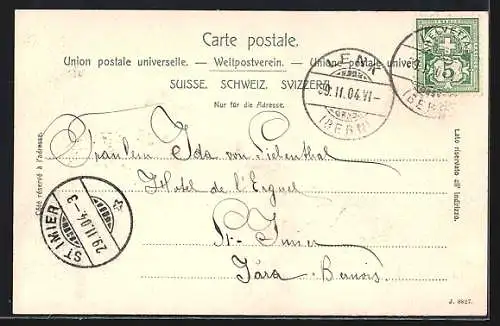 Carte postale.
Union postale universelle. — Weltpostverein. — Unione postale universale
SUISSE. SCHWEIZ. SVIZZERA
Nur für die Adresse.
HELVETIA
5
LENK
29.II.04.VI-
(BERN)
(BERN)
Côté réservé à l'adresse.
Lato riservato all' indirizzo.
Fraulein Ida von Siebenthal
Hotel de l'Erguel
St-Imier
Jura-Bernois
ST IMIER
29.II.04.-3
J. 8827.